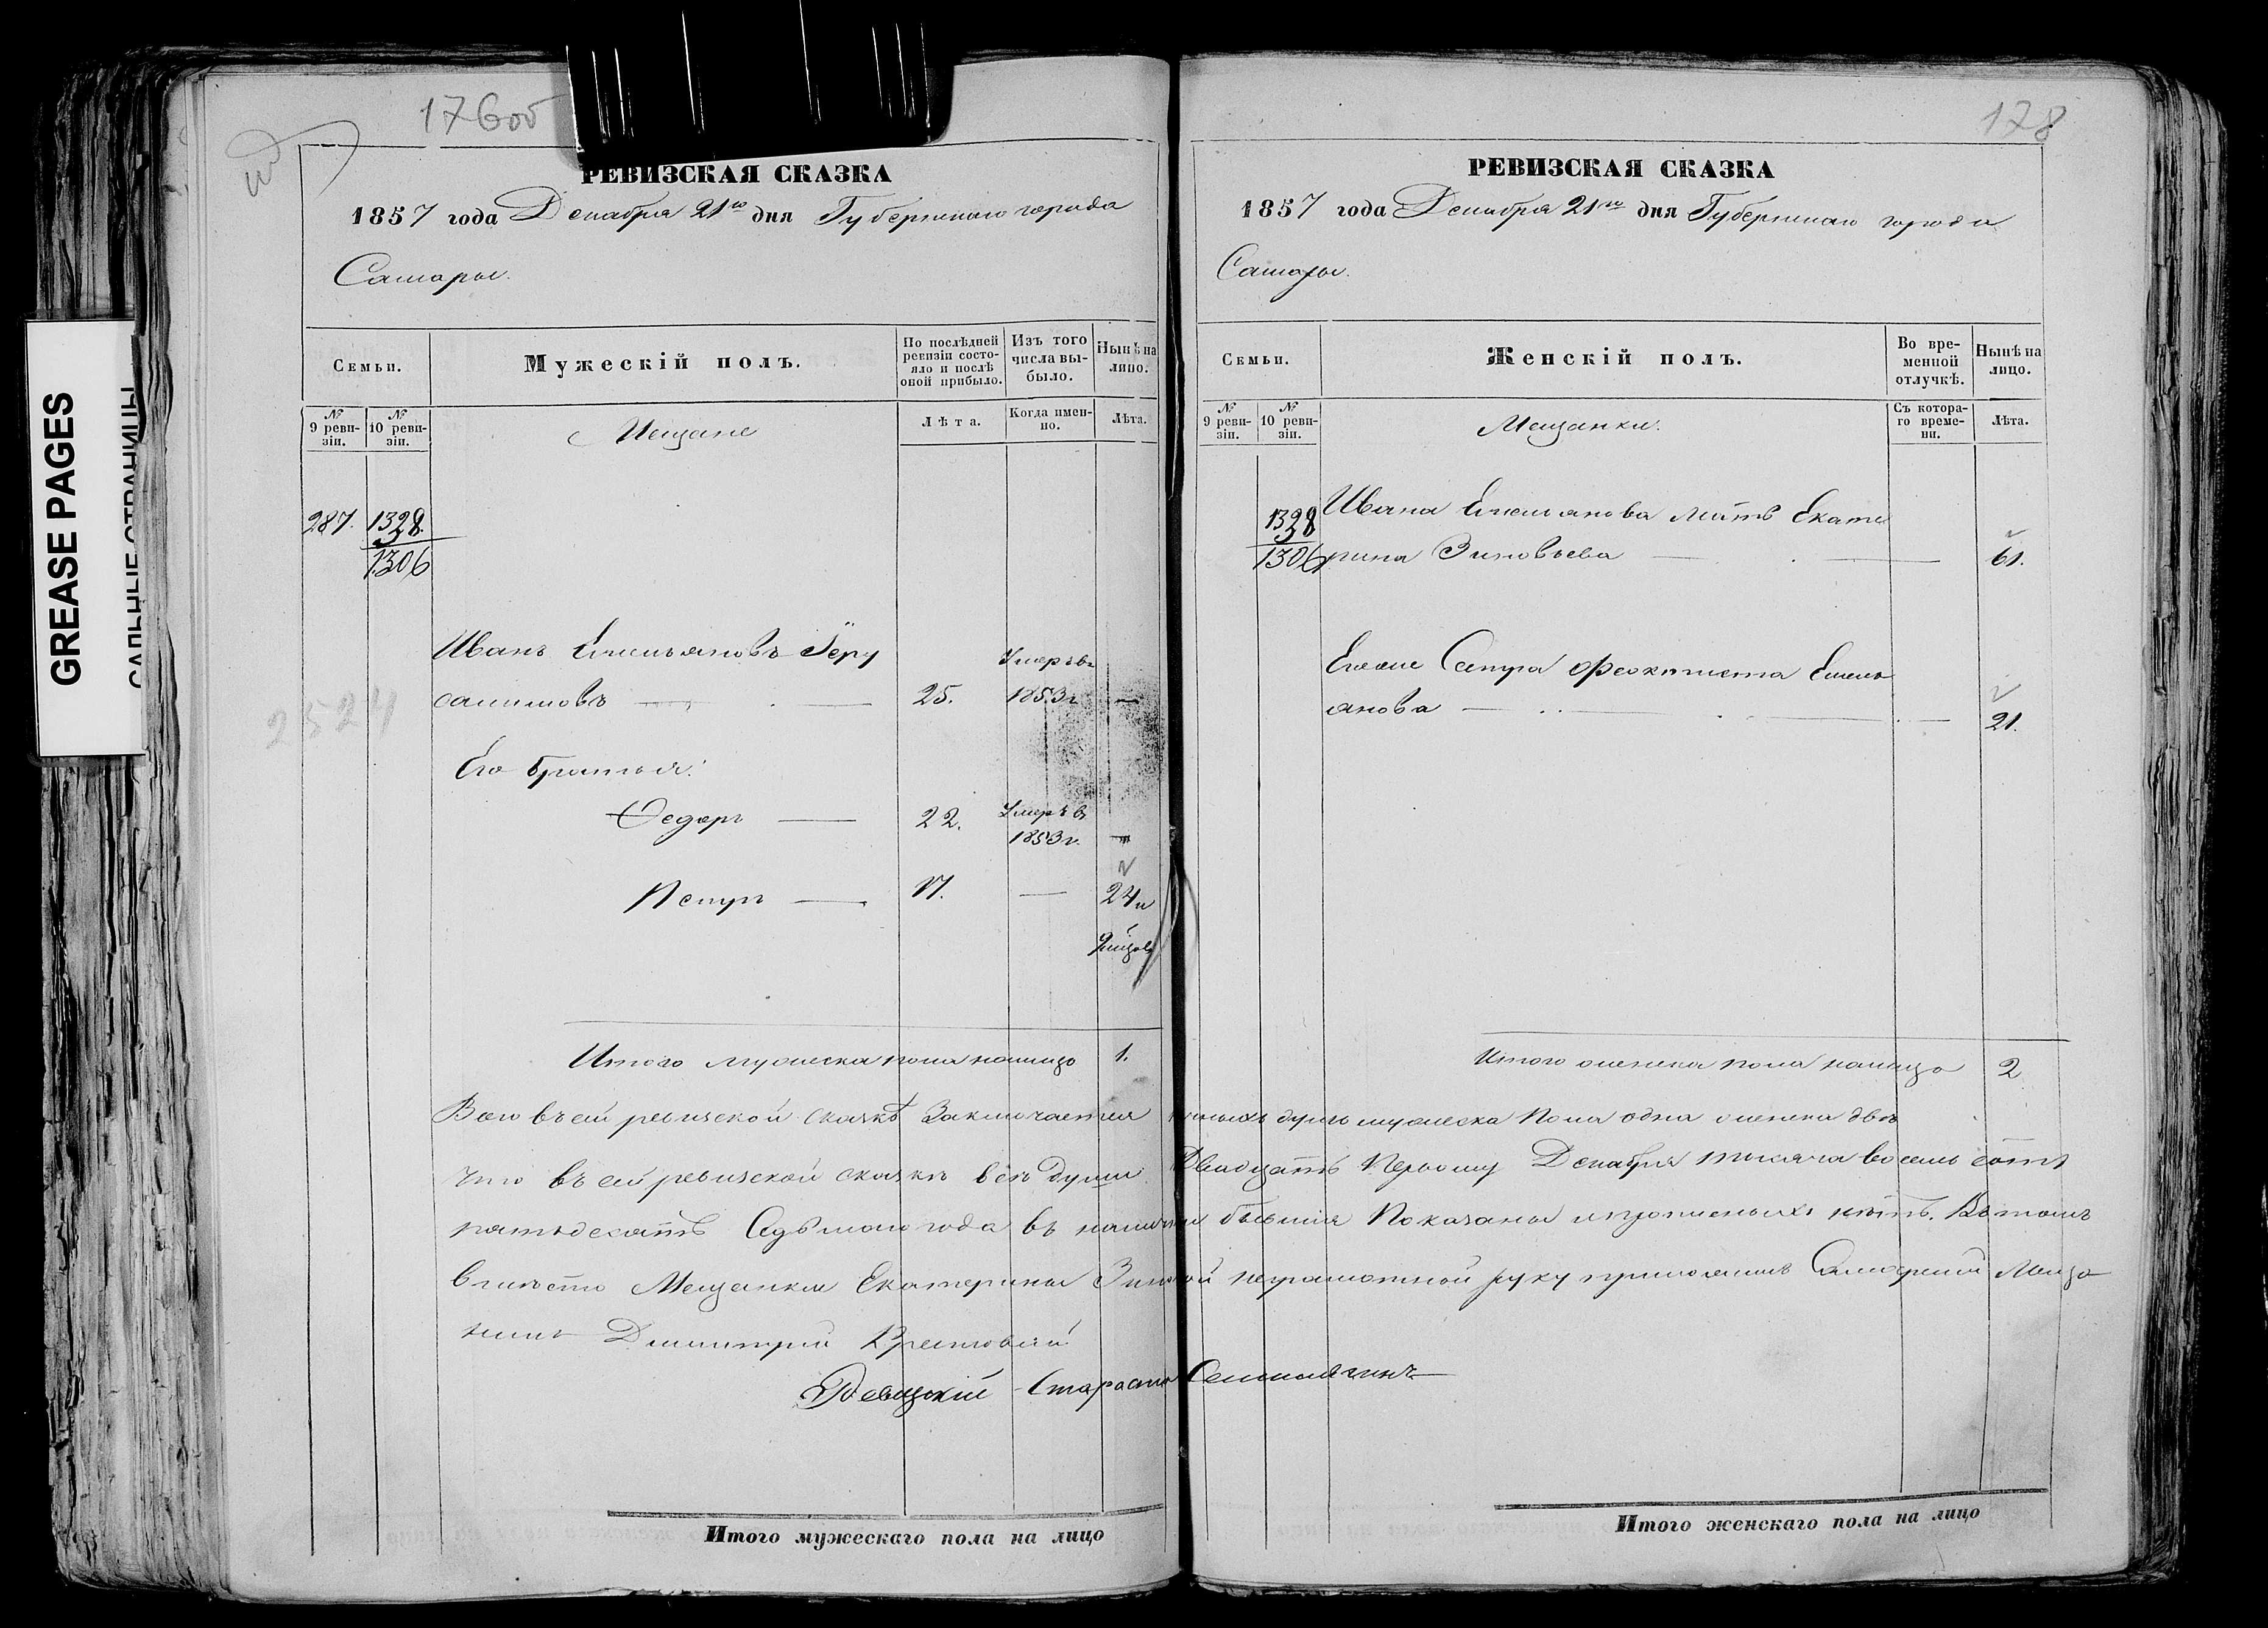 176об
178
GREASE PAGES
САЛЬНЫЕ СТРАНИЦЫ
РЕВИЗСКАЯ СКАЗКА
1857 года Декабря 21го дня Губернскаго города
Самары.
Семьи.
Мужескій полъ.
По послѣдней ревизіи состояло и послѣ оной прибыло.
Изъ того числа выбыло.
Нынѣ на лицо.
№ 9 ревизіи.
№ 10 ревизіи.
Мещане
Лѣта.
Когда именно.
Лѣта.
287. 1328.
1306
Иванъ Емельяновъ Іеру
салимовъ — 25. Умеръ въ 1853 г. —
2524
Его братья:
Федоръ — 22. Умеръ въ 1853 г. —
Петръ — 17. — 24 и
Итого мужеска пола налицо 1.
РЕВИЗСКАЯ СКАЗКА
1857 года Декабря 21го дня Губернскаго города
Самары.
Семьи.
Женскій полъ.
Во временной отлучкѣ.
Нынѣ на лицо.
№ 9 ревизіи.
№ 10 ревизіи.
Мещанки.
Съ котораго времени.
Лѣта.
1328 Ивана Емельянова мать Екате
1306 рина Зиновьева — 61.
Егоже Сестра Феоктиста Емель
янова — 21.
Итого женска пола налицо 2
Всего въ сей ревизской сказкѣ Заключается душъ мужеска пола одна женска двѣ
что въ сей ревизской сказкѣ всѣ души Двадцать Первому Декабря тысяча восемь сотъ
пятьдесятъ Седьмаго года въ наличіи бывшія Показаны и прописныхъ нѣтъ. Въ томъ
вмѣсто Мещанки Екатерины неграмотной руку приложилъ Самарскій Меща
нинъ Димитрій
Староста
Итого мужескаго пола на лицо
Итого женскаго пола на лицо